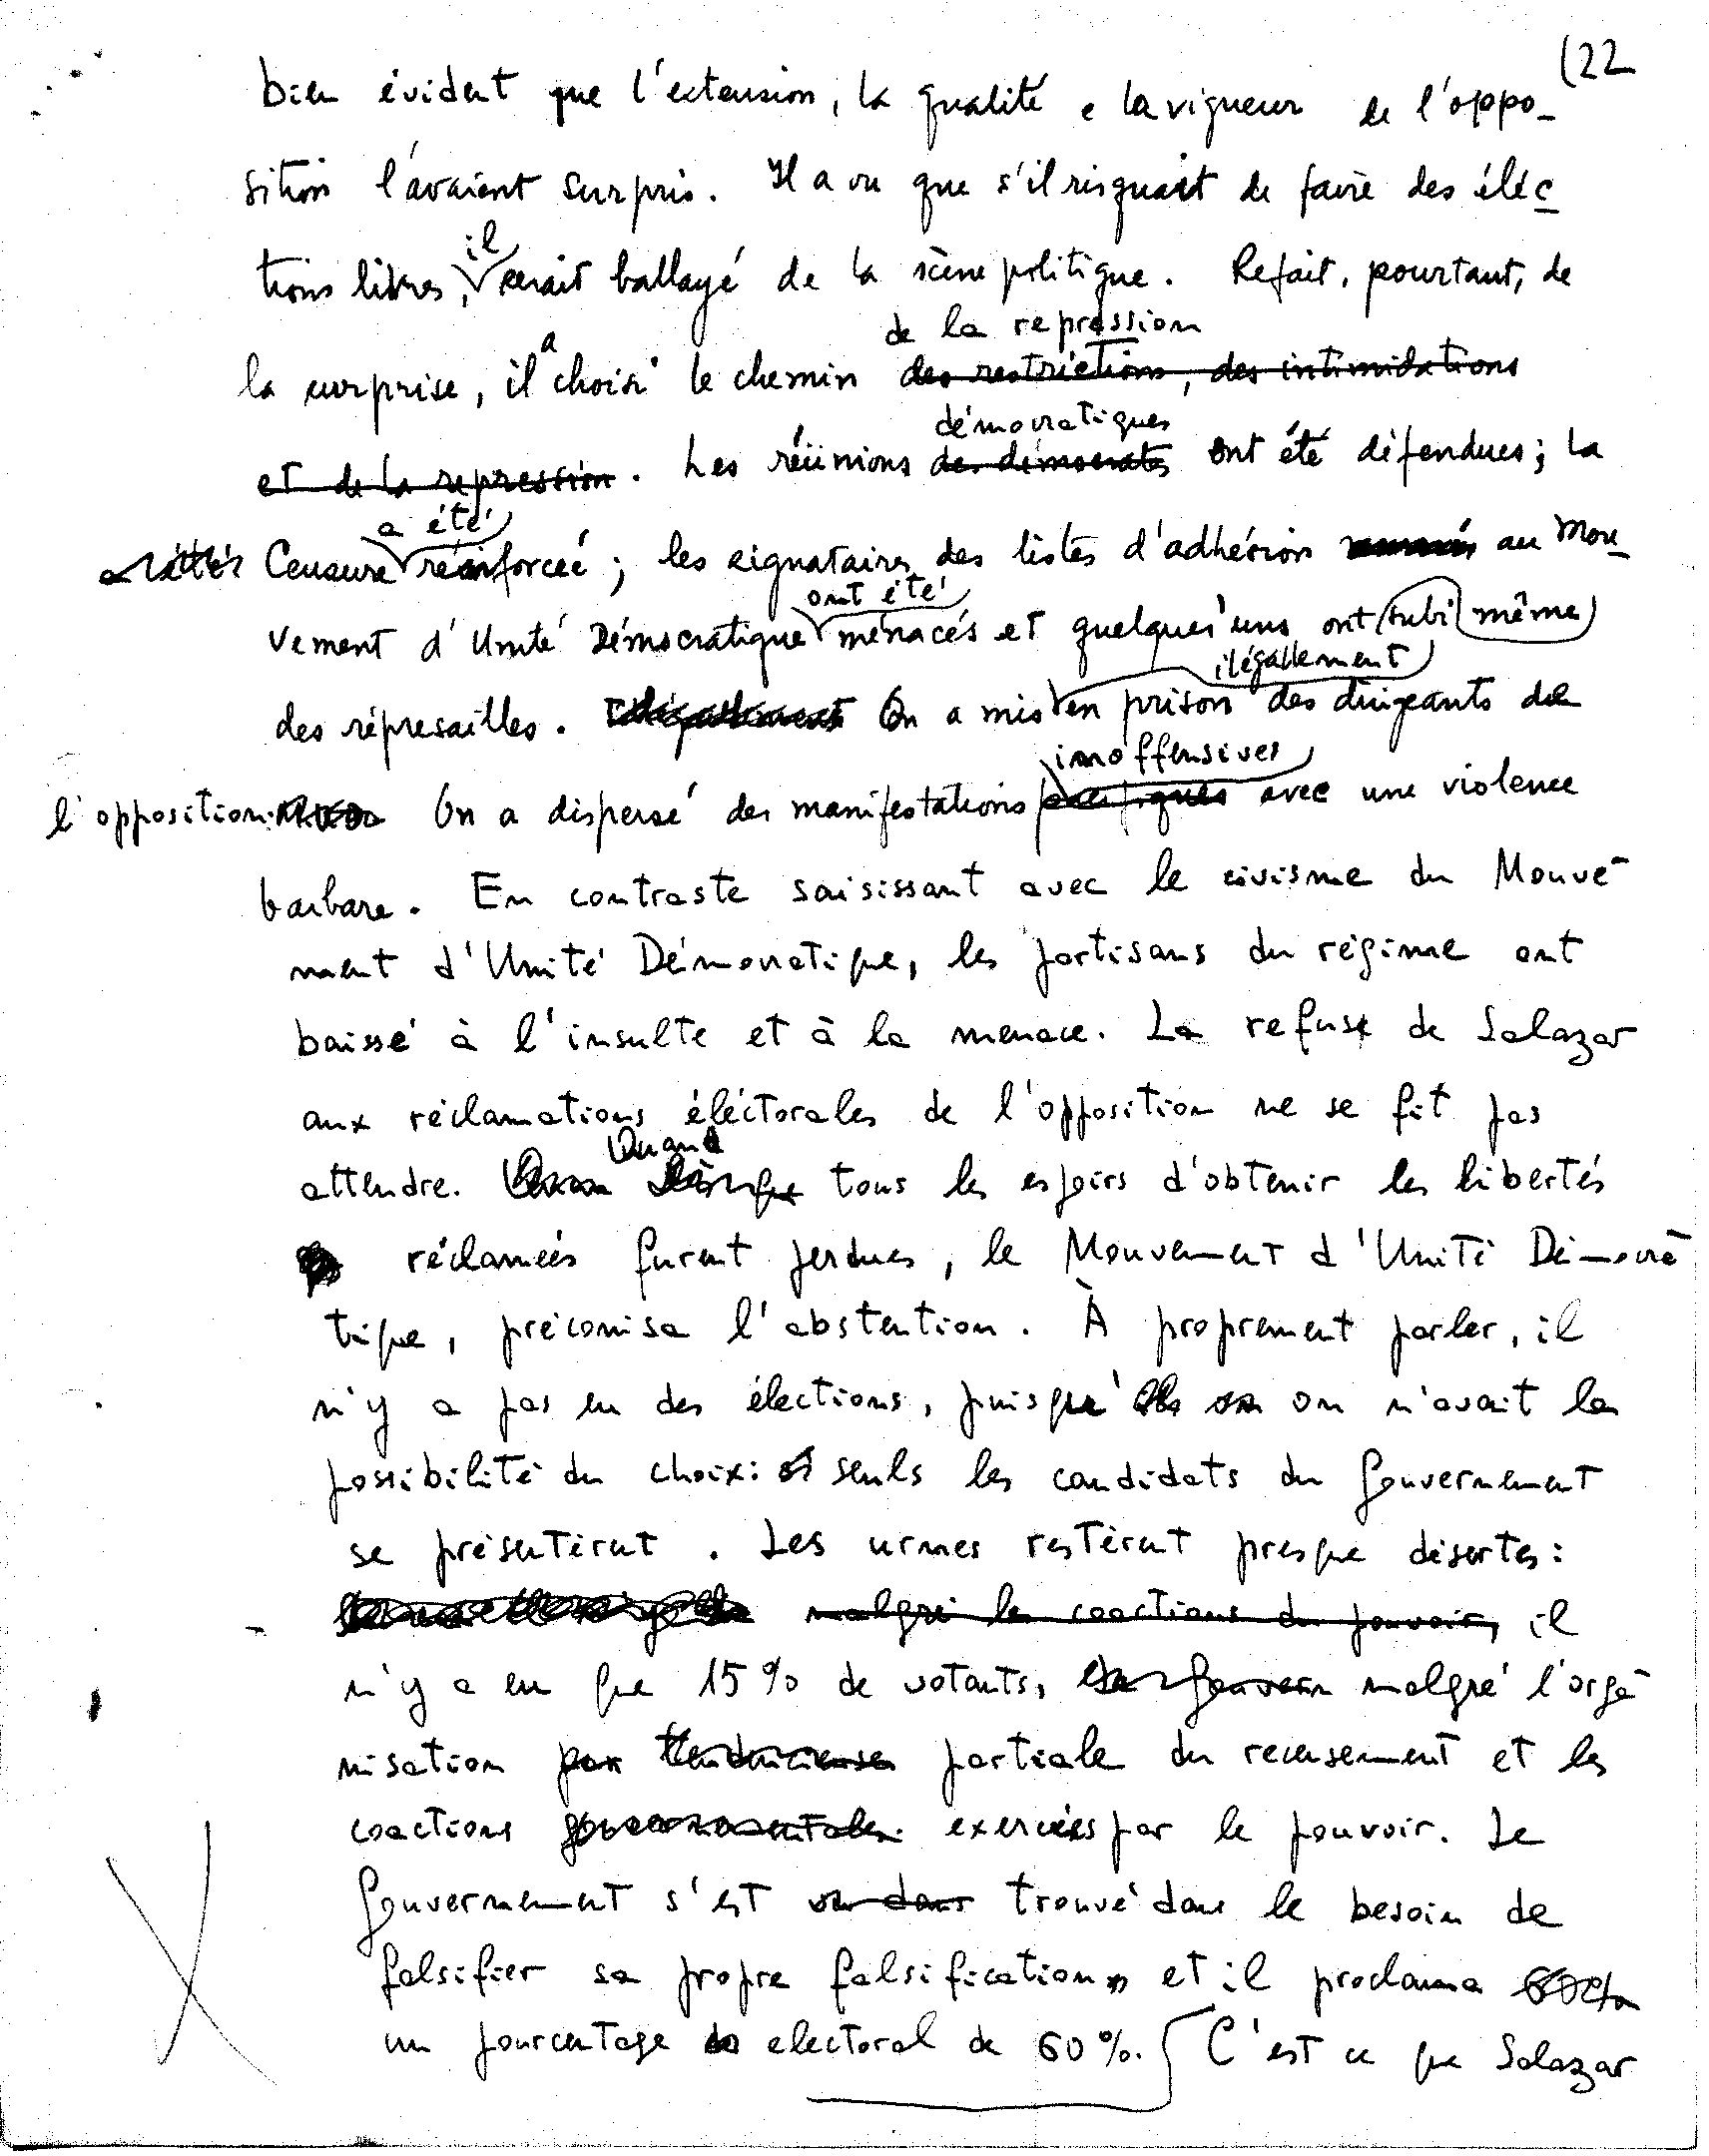 (22
bien évident que l'extension, la qualité e la vigueur de l'oppo-
sition l'avaient surpris. Il a vu que s'il risquait de faire des éléc
tions libres, il serait ballayé de la scène politique. Refait, pourtant, de
de la repression
la surprise, il a choisi le chemin des restrictions, des intimidations
démocratiques
et de la repression. Les réunions des démocrates ont été défendues; la
a été
Censure réinforcée; les signataires des listes d'adhésion au Mou-
ont été
vement d'Unité Démocratique menacés et quelques'uns ont subi même
ilégallement
des répresailles. On a mis en prison des dirigeants de
inoffensives
l'opposition. On a dispersé des manifestations pacifiques avec une violence
barbare. En contraste saisissant avec le civisme du Mouve-
ment d'Unité Démocratique, les partisans du régime ont
baissé à l'insulte et à la menace. Le refus de Salazar
aux réclamations éléctorales de l'opposition ne se fit pas
Quand
attendre. Lorsque tous les espoirs d'obtenir les libertés
réclamées furent perdues, le Mouvement d'Unité Démocra-
tique, préconisa l'abstention. À proprement parler, il
n'y a pas eu des élections, puisqu'on n'avait la
possibilité du choix: seuls les candidats du gouvernement
se présentèrent. Les urnes restèrent presque désertes:
malgré les coactions du pouvoir, il
n'y a eu que 15% de votants, malgré l'orga-
nisation par tendencieuse partiale du recensement et les
coactions gouvernementales exercées par le pouvoir. Le
Gouvernement s'est vu dans trouvé dans le besoin de
falsifier sa propre falsification, et il proclama 60%
un pourcentage electoral de 60%. C'est ce que Salazar